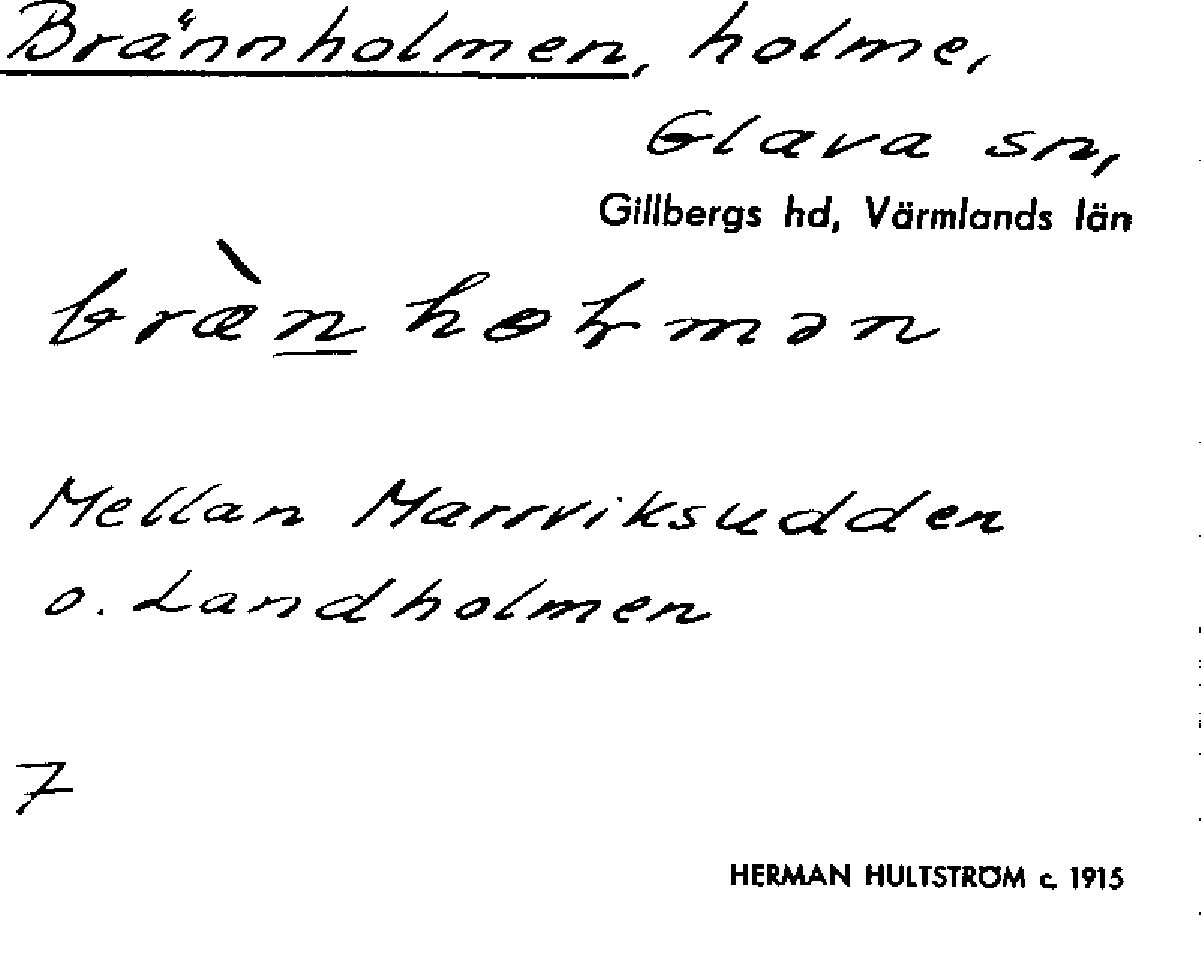 Brännholmen, holme,
Glava sn,
Gillbergs hd, Värmlands län
bræ̀n hoɫmən
Mellan Marrviksudden
o. Landholmen
7
HERMAN HULTSTRÖM c. 1915